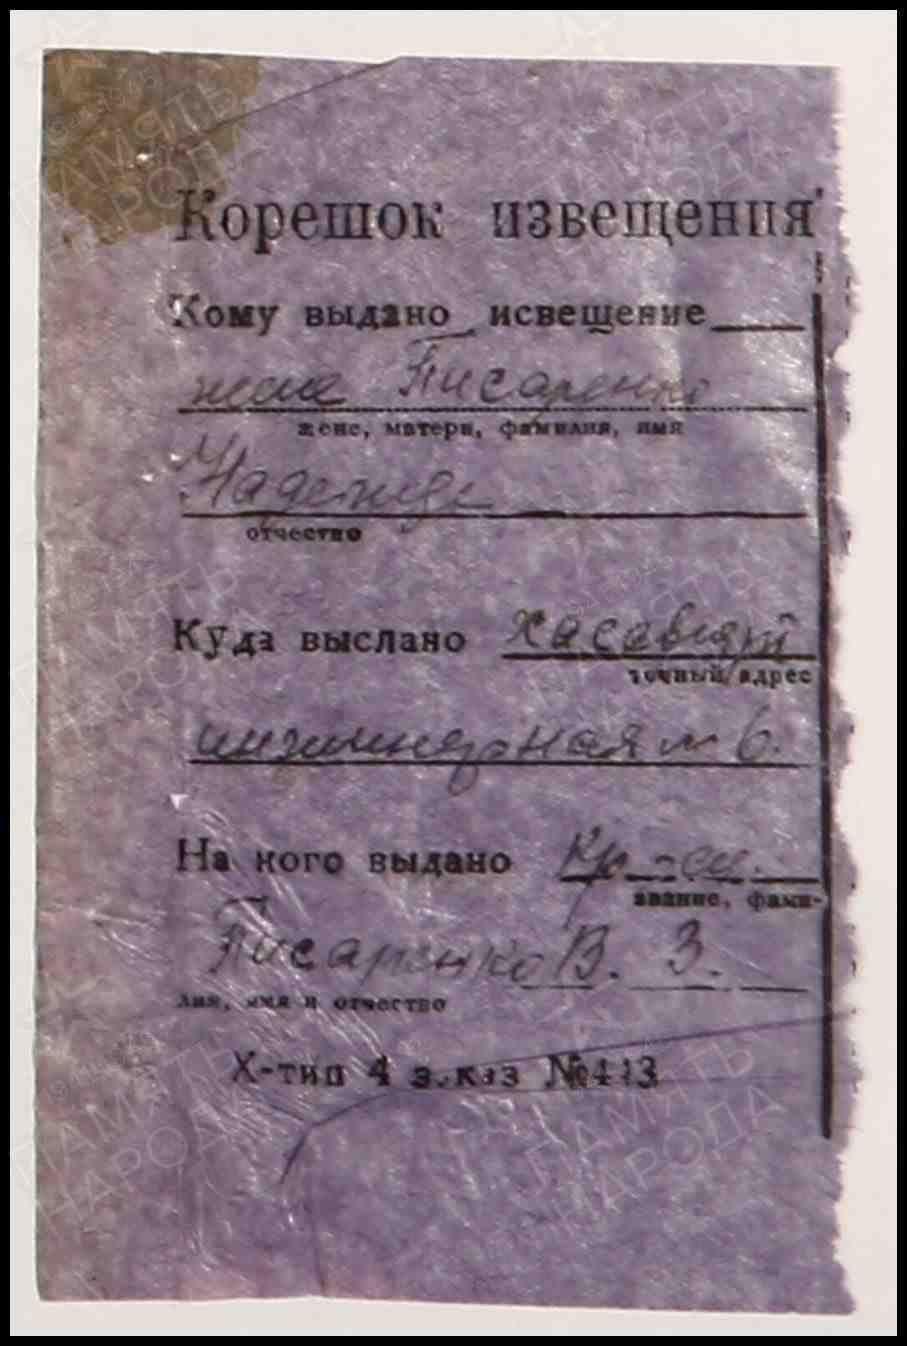 Корешок извещения
Кому выдано исвещение
жене Писаренко
жене, матери, фамилия, имя
Надежде
отчество
Куда выслано Хасавюрт
точный адрес
инженерная 6.
На кого выдано Кр-ец
звание, фами-
Писаренко В. З.
лия, имя и отчество
Х-тип 4 заказ №413